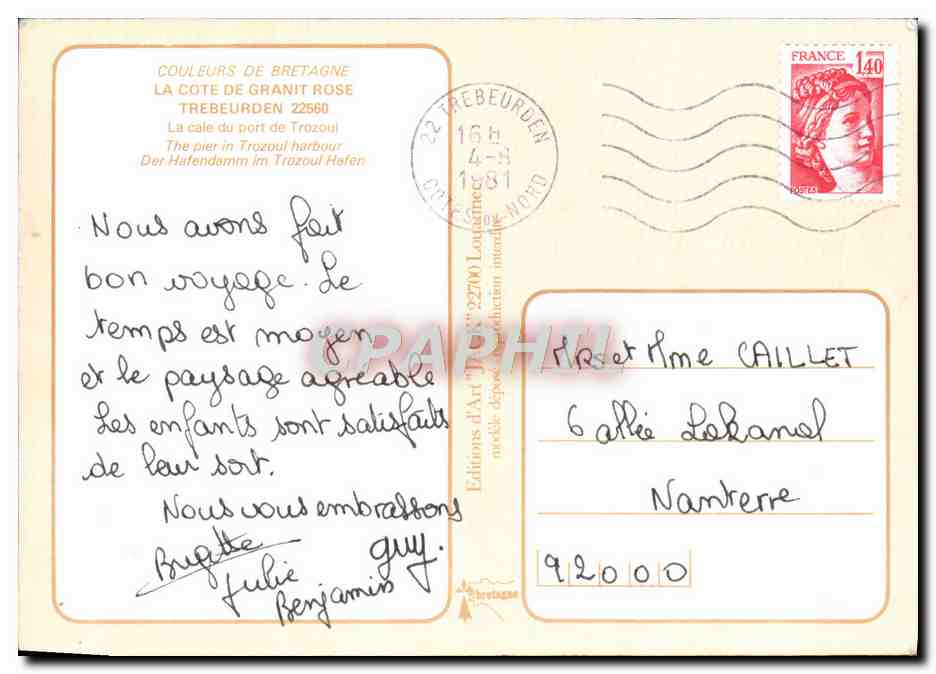 COULEURS DE BRETAGNE
LA COTE DE GRANIT ROSE
TREBEURDEN 22560
La cale du port de Trozoul
The pier in Trozoul harbour
Der Hafendamm im Trozoul Hafen
Nous avons fait
bon voyage. Le
temps est moyen
et le paysage agréable
Les enfants sont satisfaits
de leur sort.
Nous vous embrassons
Brigitte guy.
Julie
Benjamin
22 TREBEURDEN
16H
4-8
1981
COTES DU NORD
FRANCE
1,40
POSTES
Editions d'Art 22700 Louannec
modèle déposé reproduction interdite
bretagne
CPAPHIL
Mrs et Mme CAILLET
6 allée Lakanal
Nanterre
92000